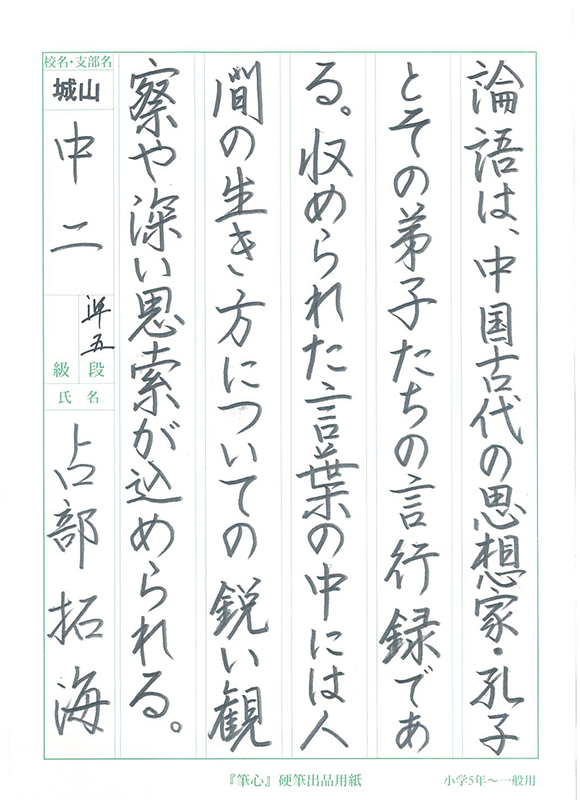 論語は、中国古代の思想家・孔子
とその弟子たちの言行録であ
る。収められた言葉の中には人
間の生き方についての鋭い観
察や深い思索が込められる。
校名・支部名
城山
中二
準五
段
級
氏名
占部拓海
『筆心』硬筆出品用紙
小学5年〜一般用